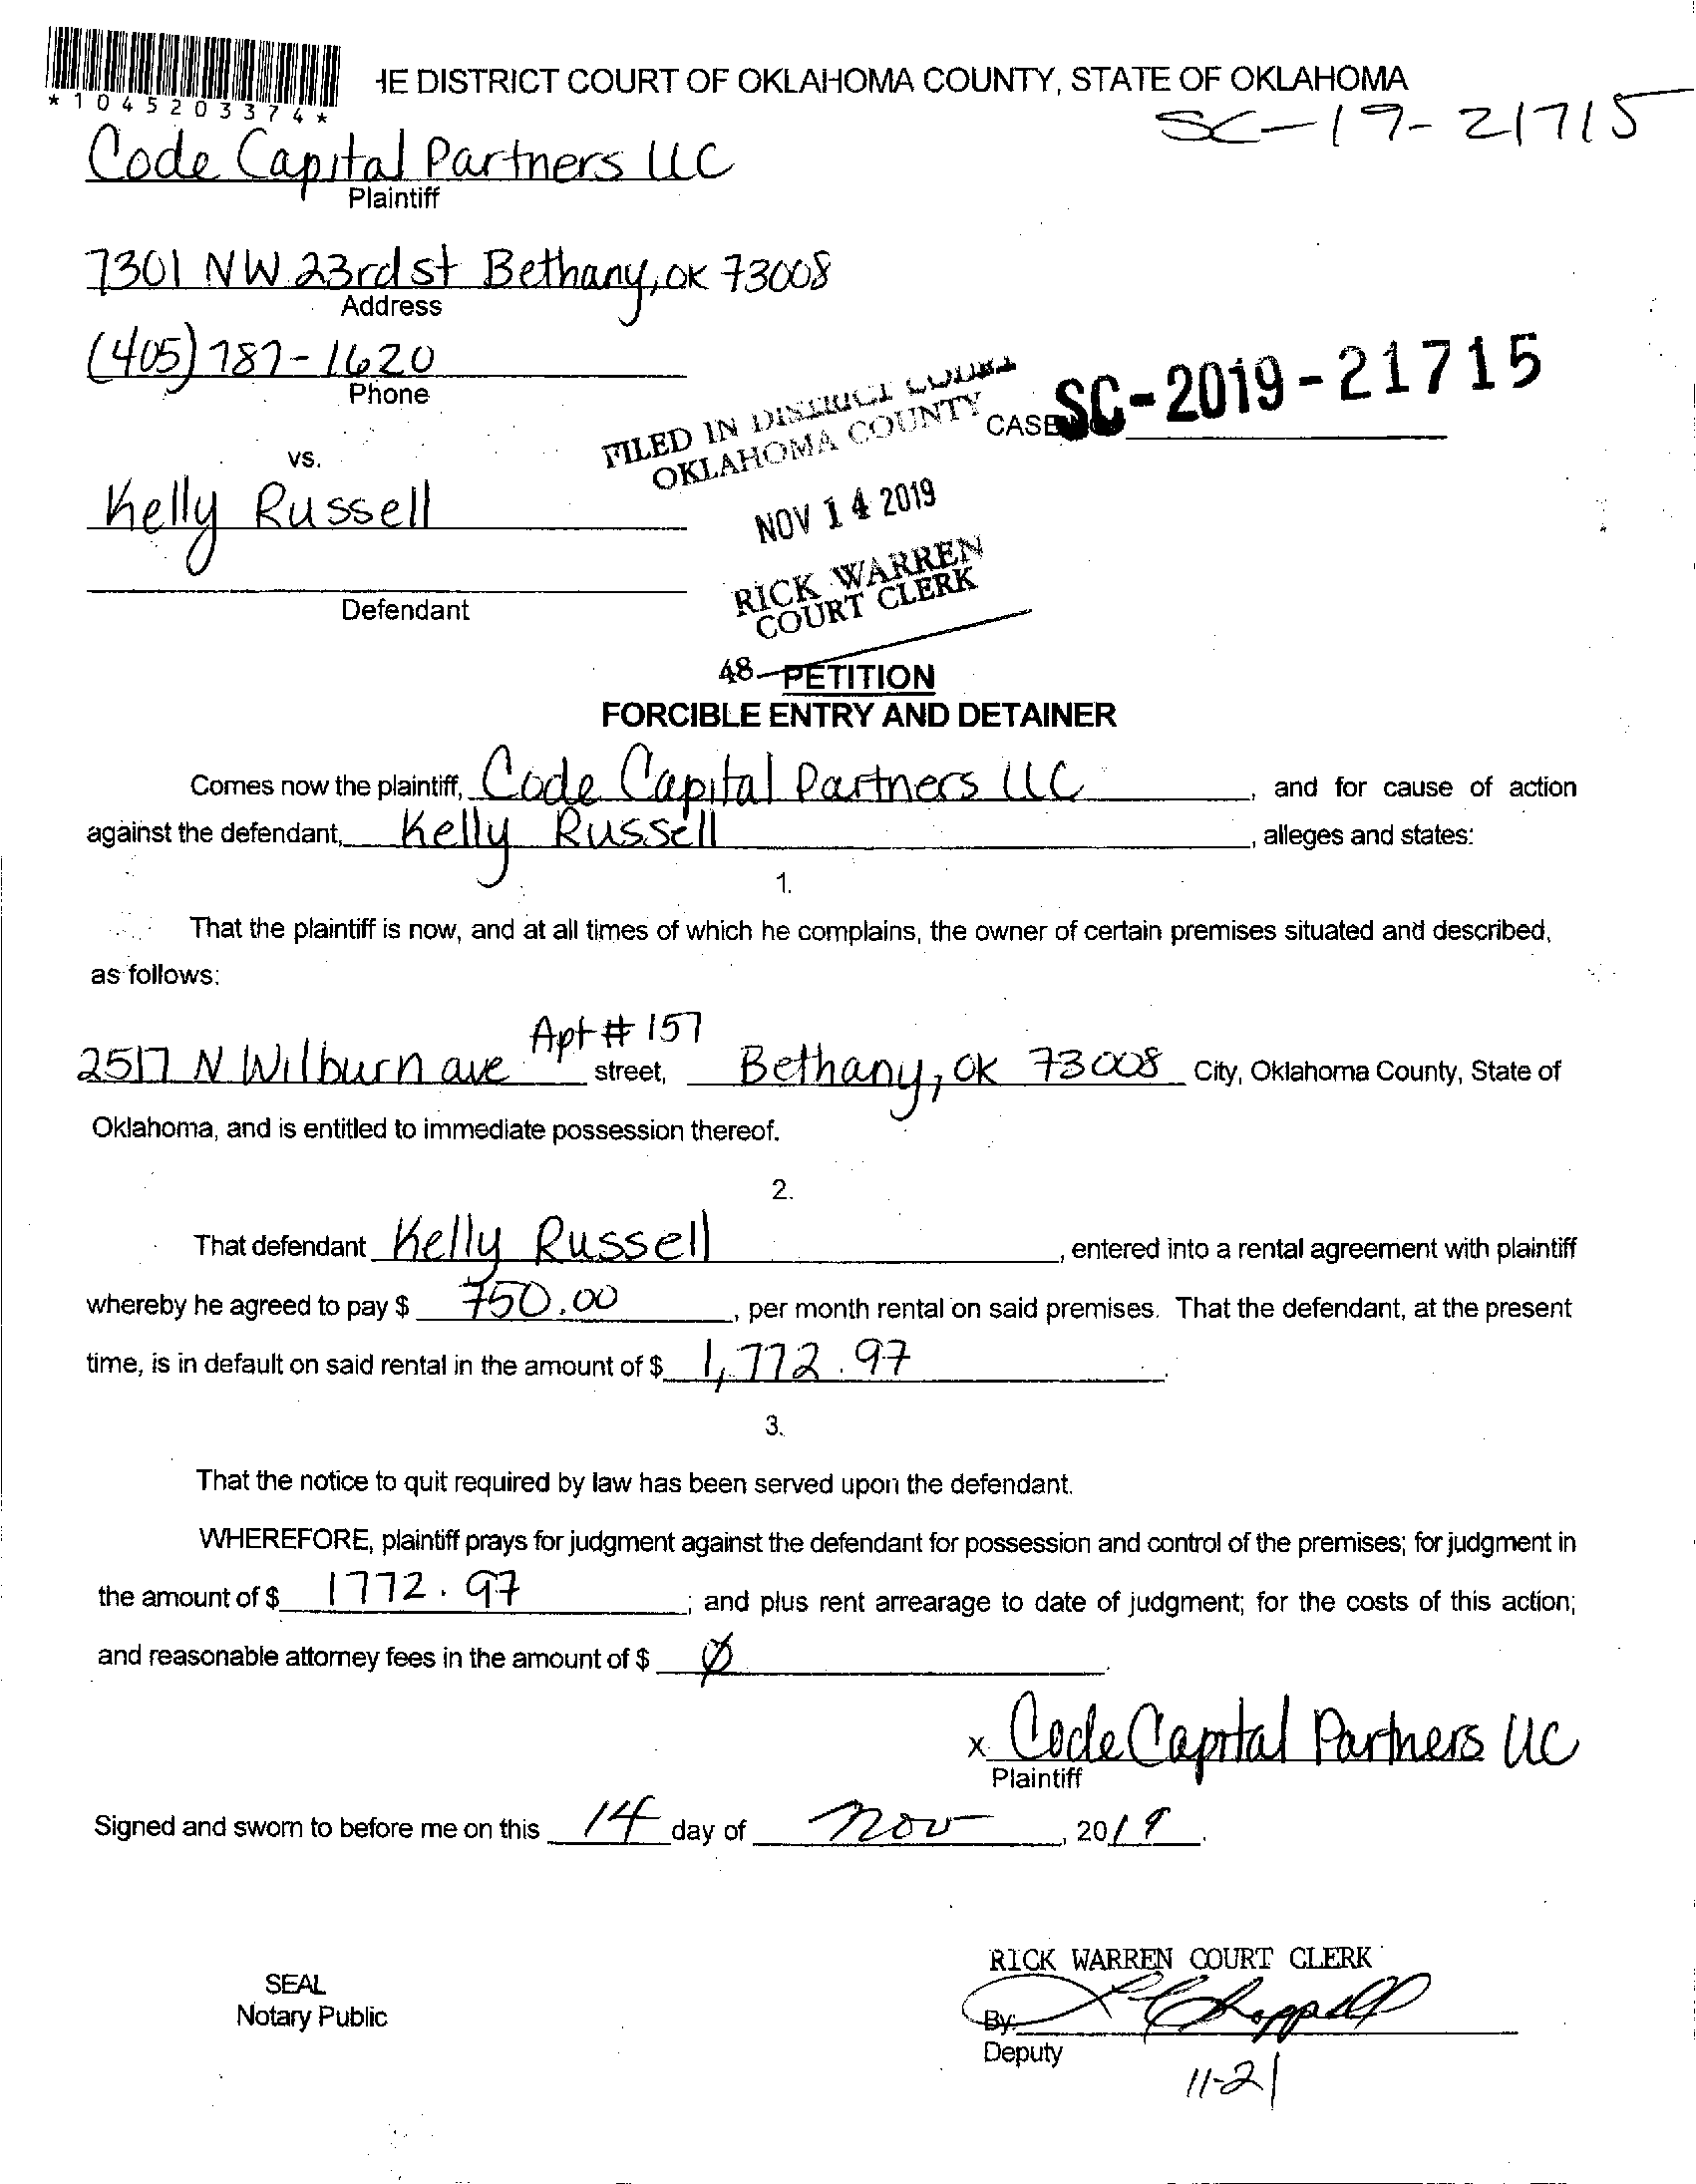 *1045203374*
HE DISTRICT COURT OF OKLAHOMA COUNTY, STATE OF OKLAHOMA
SC-19-21715
Code Capital Partners LLC
Plaintiff
7301 NW 23rd st Bethany, OK 73008
Address
(405) 787-1620
Phone
FILED IN DISTRICT COURT
OKLAHOMA COUNTY
CASE SC-2019-21715
vs.
Kelly Russell
NOV 14 2019
RICK WARREN
COURT CLERK
Defendant
48
PETITION
FORCIBLE ENTRY AND DETAINER
Comes now the plaintiff, Code Capital Partners LLC, and for cause of action
against the defendant, Kelly Russell, alleges and states:
1.
That the plaintiff is now, and at all times of which he complains, the owner of certain premises situated and described,
as follows:
2517 N Wilburn ave Apt # 157 street, Bethany, OK 73008 City, Oklahoma County, State of
Oklahoma, and is entitled to immediate possession thereof.
2.
That defendant Kelly Russell, entered into a rental agreement with plaintiff
whereby he agreed to pay $ 750.00, per month rental on said premises. That the defendant, at the present
time, is in default on said rental in the amount of $ 1,772.97.
3.
That the notice to quit required by law has been served upon the defendant.
WHEREFORE, plaintiff prays for judgment against the defendant for possession and control of the premises; for judgment in
the amount of $ 1772.97; and plus rent arrearage to date of judgment; for the costs of this action;
and reasonable attorney fees in the amount of $ Ø.
x Code Capital Partners LLC
Plaintiff
Signed and sworn to before me on this 14 day of Nov, 2019.
RICK WARREN COURT CLERK
SEAL
Notary Public
By:
Deputy
11-21